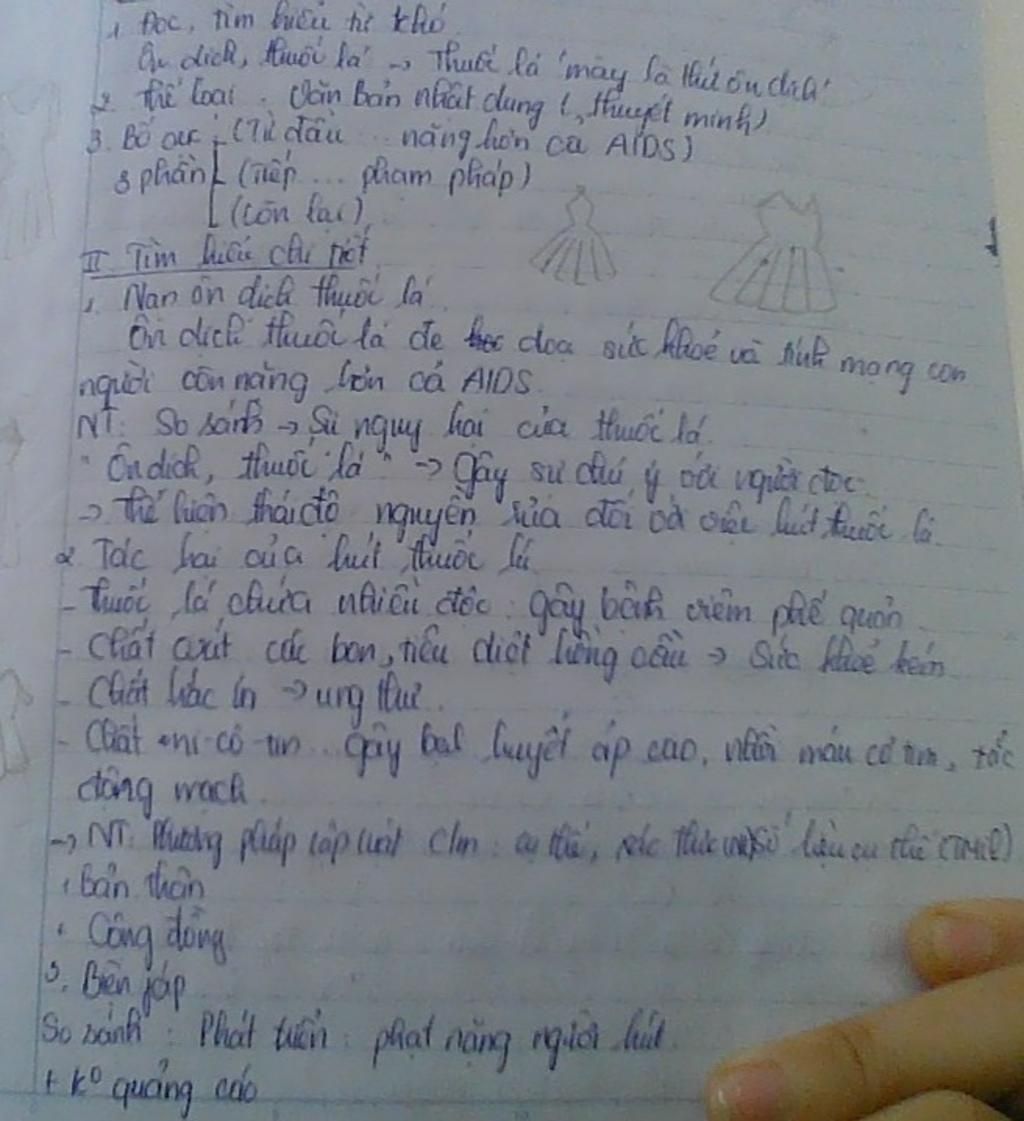 1 Đọc, tìm hiểu từ khó
Ôn dịch, thuốc lá -> Thuốc lá mày là thứ ôn dịch
2 Thể loại. Văn bản nhật dụng (, thuyết minh)
3. Bố cục (Từ đầu ... nặng hơn cả AIDS)
3 phần (Tiếp ... phạm pháp)
(còn lại)
II Tìm hiểu chi tiết
1, Nạn ôn dịch thuốc lá.
Ôn dịch thuốc lá đe doạ sức khoẻ và tính mạng con
người còn nặng hơn cả AIDS.
NT: So sánh -> Sự nguy hại của thuốc lá.
"Ôn dịch, thuốc lá" -> gây sự chú ý với người đọc.
-> thể hiện thái độ nguyền rủa đối với việc hút thuốc lá.
2 Tác hại của hút thuốc lá
- Thuốc lá chứa nhiều độc: gây bệnh viêm phế quản
- Chất oxit các bon, tiêu diệt hồng cầu -> Sức khoẻ kém
- Chất hắc ín -> ung thư.
- Chất ni-cô-tin .. gây huyết áp cao, nhồi máu cơ tim, tắc
động mạch.
-> NT: Phương pháp lập luận : cụ thể, xác thực số liệu cụ thể
Bản thân
Cộng đồng
3. Biện
So sánh: Phát triển: phạt nặng người hút
+ K° quảng cáo